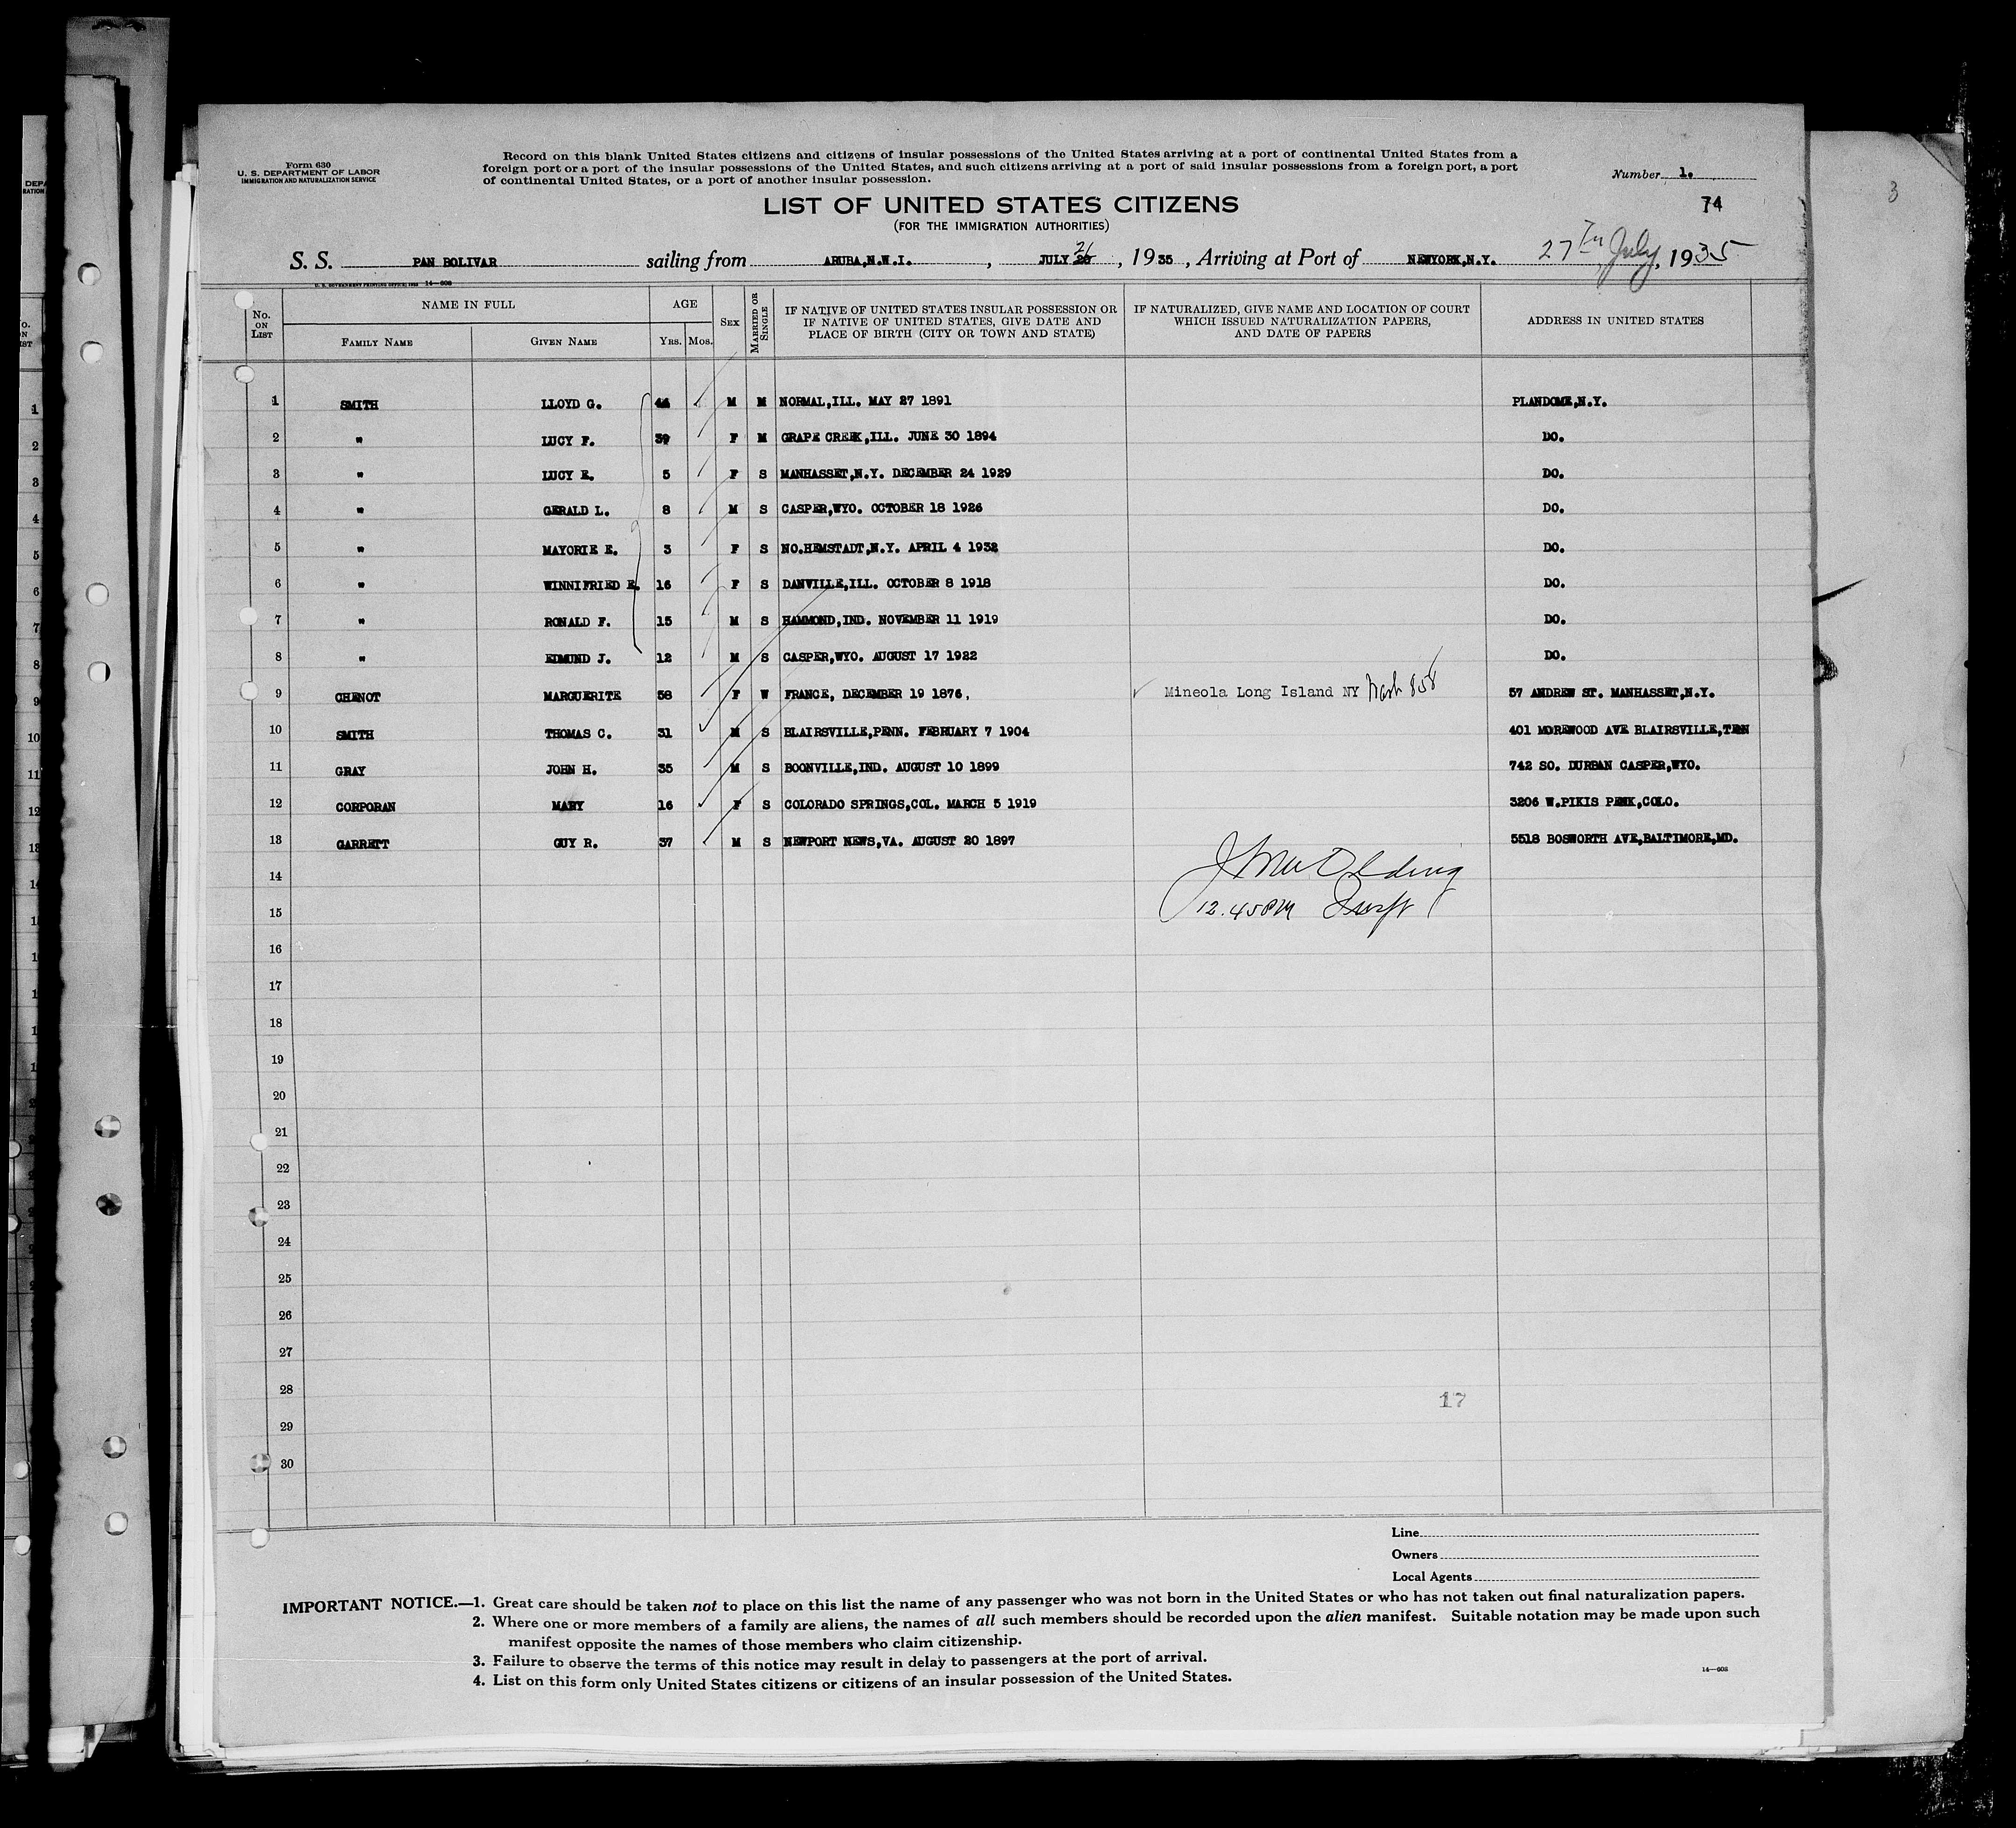 Form 630
U. S. DEPARTMENT OF LABOR
IMMIGRATION AND NATURALIZATION SERVICE
Record on this blank United States citizens and citizens of insular possessions of the United States arriving at a port of continental United States from a
foreign port or a port of the insular possessions of the United States, and such citizens arriving at a port of said insular possessions from a foreign port, a port
of continental United States, or a port of another insular possession.
Number 1.
3
74
LIST OF UNITED STATES CITIZENS
(FOR THE IMMIGRATION AUTHORITIES)
S. S. PAN BOLIVAR sailing from ARUBA,N.W.I. , JULY 21 , 1935 , Arriving at Port of NEWYORK,N.Y. 27th July, 1935
U. S. GOVERNMENT PRINTING OFFICE: 14—608
No. ON LIST NAME IN FULL AGE SEX MARRIED OR SINGLE IF NATIVE OF UNITED STATES INSULAR POSSESSION OR IF NATIVE OF UNITED STATES, GIVE DATE AND PLACE OF BIRTH (CITY OR TOWN AND STATE) IF NATURALIZED, GIVE NAME AND LOCATION OF COURT WHICH ISSUED NATURALIZATION PAPERS, AND DATE OF PAPERS ADDRESS IN UNITED STATES
FAMILY NAME GIVEN NAME YRS. MOS.
1 SMITH LLOYD G. 44 M M NORMAL,ILL. MAY 27 1891 PLANDOME,N.Y.
2 " LUCY F. 39 F M GRAPE CREEK,ILL. JUNE 30 1894 DO.
3 " LUCY E. 5 F S MANHASSET,N.Y. DECEMBER 24 1929 DO.
4 " GERALD L. 8 M S CASPER,WYO. OCTOBER 18 1926 DO.
5 " MAYORIE E. 3 F S NO.HEMSTADT,N.Y. APRIL 4 1932 DO.
6 " WINNIFRIED E. 16 F S DANVILLE,ILL. OCTOBER 8 1918 DO.
7 " RONALD F. 15 M S HAMMOND,IND. NOVEMBER 11 1919 DO.
8 " EDMUND J. 12 M S CASPER,WYO. AUGUST 17 1922 DO.
9 CHENOT MARGUERITE 58 F W FRANCE, DECEMBER 19 1876, Mineola Long Island NY 57 ANDREW ST. MANHASSET,N.Y.
10 SMITH THOMAS C. 31 M S BLAIRSVILLE,PENN. FEBRUARY 7 1904 401 MOREWOOD AVE BLAIRSVILLE,
11 GRAY JOHN H. 35 M S BOONVILLE,IND. AUGUST 10 1899 742 SO. DURBAN CASPER,WYO.
12 CORPORAN MARY 16 F S COLORADO SPRINGS,COL. MARCH 5 1919 3206 W.PIKIS PENK,COLO.
13 GARRETT GUY R. 37 M S NEWPORT NEWS,VA. AUGUST 20 1897 5518 BOSWORTH AVE,BALTIMORE,MD.
14
15 12.45PM
16
17
18
19
20
21
22
23
24
25
26
27
28 17
29
30
Line
Owners
Local Agents
IMPORTANT NOTICE.—1. Great care should be taken not to place on this list the name of any passenger who was not born in the United States or who has not taken out final naturalization papers.
2. Where one or more members of a family are aliens, the names of all such members should be recorded upon the alien manifest. Suitable notation may be made upon such
manifest opposite the names of those members who claim citizenship.
3. Failure to observe the terms of this notice may result in delay to passengers at the port of arrival.
4. List on this form only United States citizens or citizens of an insular possession of the United States.
14—608